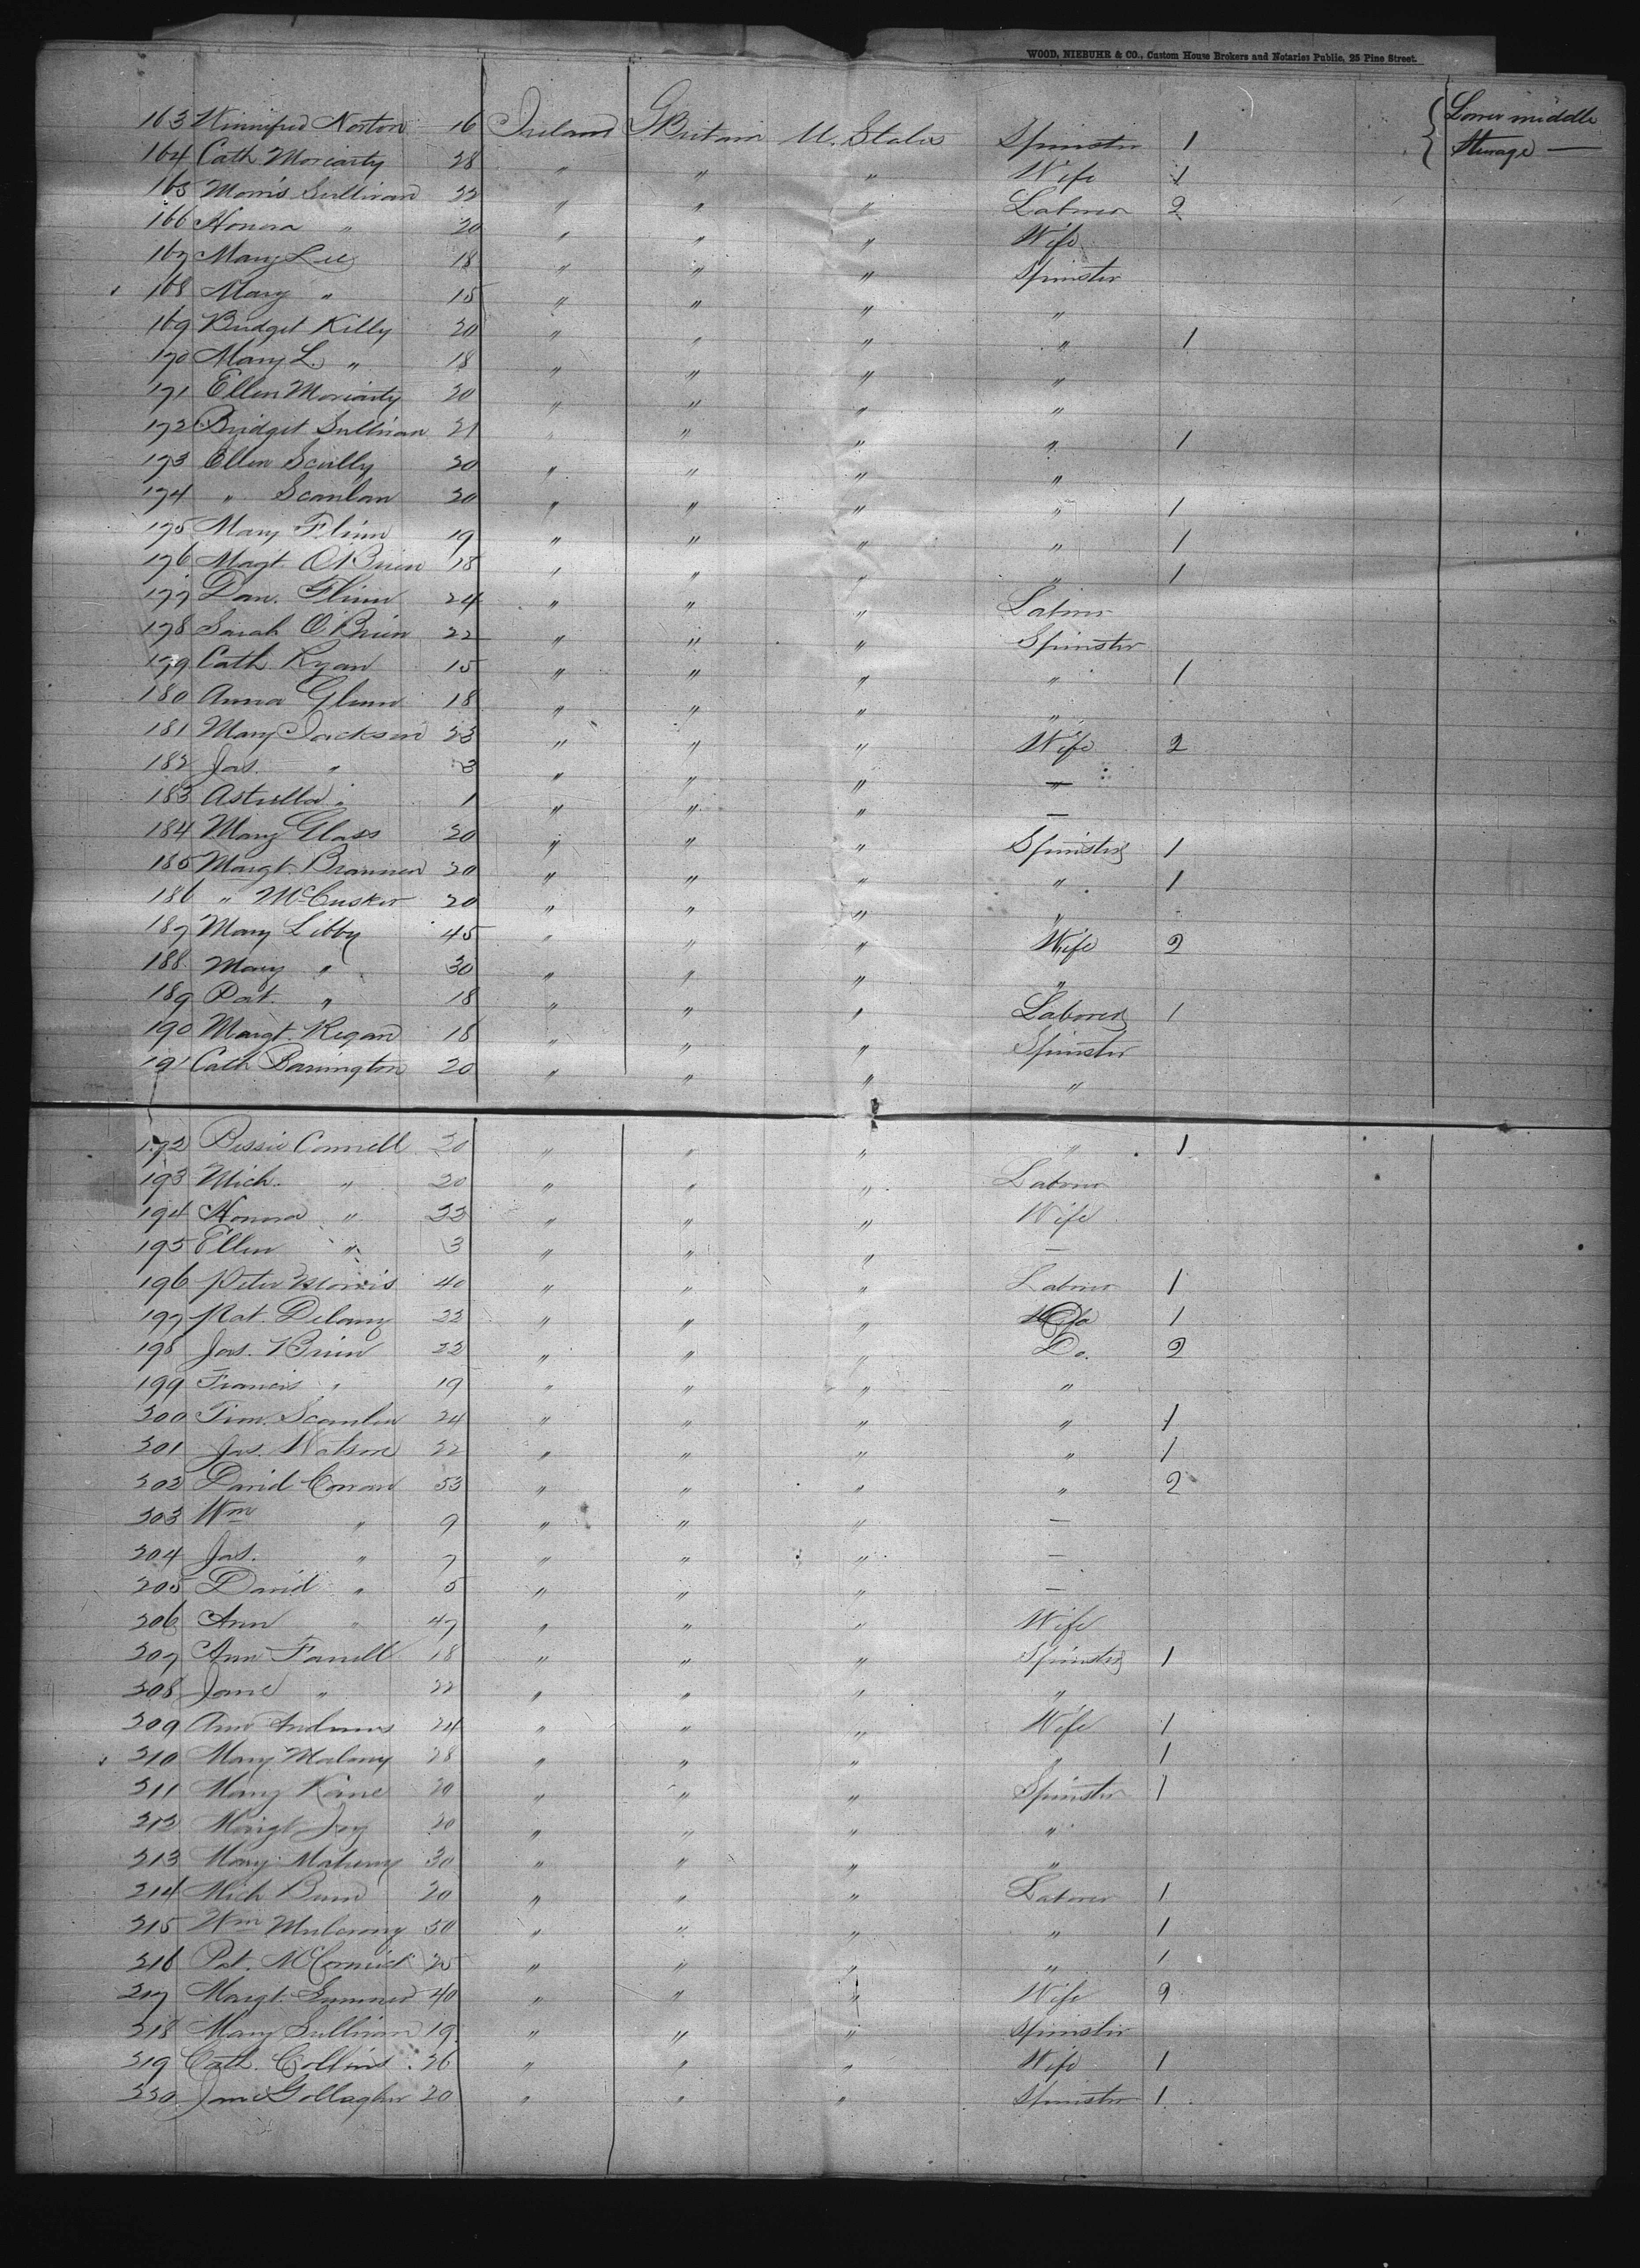 WOOD, NIEBUHR & CO., Custom House Brokers and Notaries Public, 25 Pine Street.
163 Winnifred Norton 16 Ireland GBritain U. States Spinster 1 Lower middle
Sterage —
164 Cath Moriarty 28 " " " Wife 1
165 Morris Sullivan 22 " " " Laborer 2
166 Honora " 20 " " " Wife
167 Mary Lee 18 " " " Spinster
168 Mary " 15 " " " "
169 Bridget Killy 20 " " " " 1
170 Mary L. " 18 " " " "
171 Ellen Moriarty 20 " " " "
172 Bridget Sullivan 21 " " " " 1
173 Ellen Scully 20 " " " "
174 " Scanlan 20 " " " " 1
175 Mary Flinn 19 " " " " 1
176 Magt. O'Brien 18 " " " " 1
177 Dan. Flinn 24 " " " Laborer
178 Sarah O'Brien 22 " " " Spinster
179 Cath Ryan 15 " " " " 1
180 Anna Glunn 18 " " " "
181 Mary Jackson 23 " " " Wife 2
182 Jas. " 3 " " " —
183 Astrella " 1 " " " —
184 Mary Glass 20 " " " Spinster 1
185 Margt. Brannen 20 " " " " 1
186 " McCusker 20 " " " "
187 Mary Libby 45 " " " Wife 2
188 Mary " 30 " " " "
189 Pat. " 18 " " " Laborer 1
190 Margt. Regan 18 " " " Spinster
191 Cath Barrington 20 " " " "
192 Bessie Connell 20 " " " " 1
193 Mich. " 20 " " " Laborer
194 Honora " 22 " " " Wife
195 Ellen " 3 " " " —
196 Peter Morris 40 " " " Laborer 1
197 Pat. Delany 22 " " " Do 1
198 Jas. Brien 22 " " " Do. 2
199 Francis " 19 " " " "
200 Tim. Scanlan 24 " " " " 1
201 Jas. Watson 22 " " " " 1
202 David Conran 53 " " " " 2
203 Wm " 9 " " " —
204 Jas. " 7 " " " —
205 David " 5 " " " —
206 Ann " 47 " " " Wife
207 Ann Farrell 18 " " " Spinster 1
208 Jane " 22 " " " "
209 Ann Andrews 24 " " " Wife 1
210 Mary Malany 28 " " " " 1
211 Mary Kane 20 " " " Spinster 1
212 Margt Joy 20 " " " "
213 Mary Maheny 30 " " " "
214 Mich Bunn 20 " " " Laborer 1
215 Wm Mulcrony 50 " " " " 1
216 Pat. McCormick 25 " " " " 1
217 Margt. 40 " " " Wife 2
218 Mary Sullivan 19 " " " Spinster
219 Cath. Collins 26 " " " Wife 1
220 Jane Gollagher 20 " " " Spinster 1